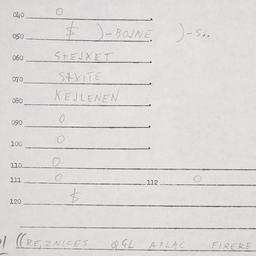 040 0
050 $ )-BOJNE )-S..
060 STEJKET
070 SAXITE
080 KEJLENEN
090 0
100 0
110 0
111 0 112 0
120 $
((REZNICES QGL APLAC FIREKE